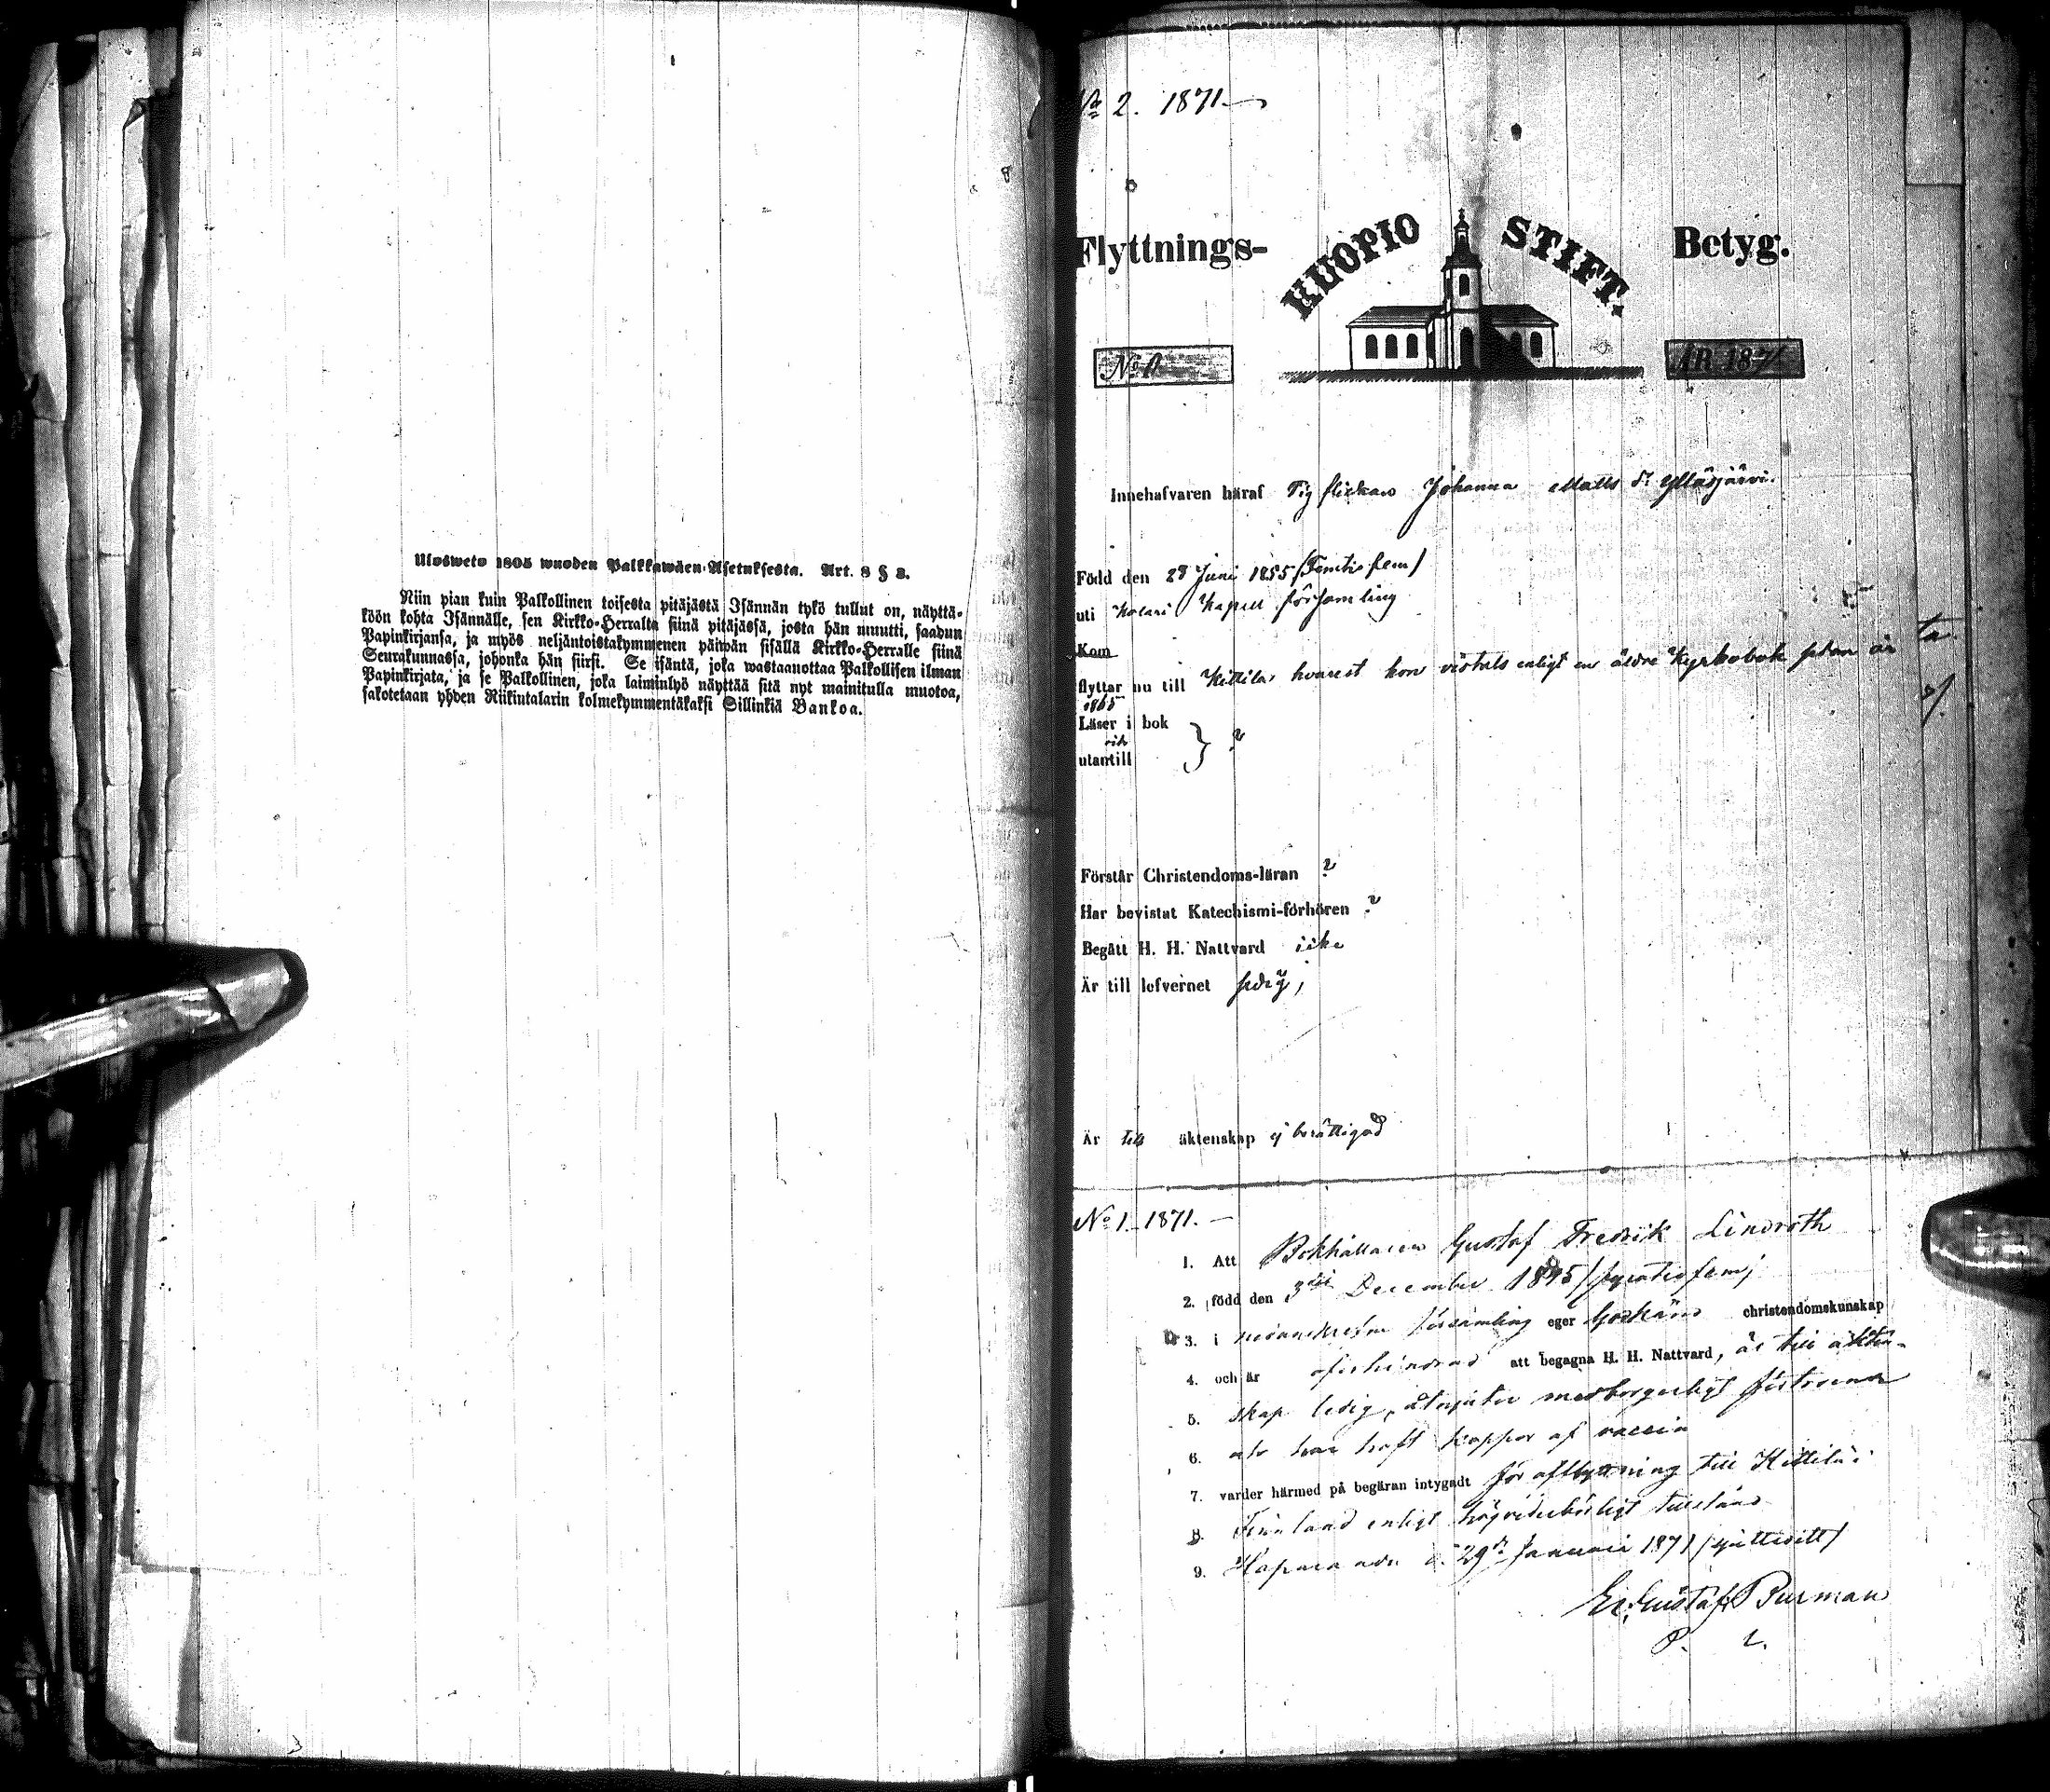 Ulosweto 1805 wuoden Palkkawäen-Asetuksesta. Art. 8 § 3.
Niin pian kuin Palkollinen toisesta pitäjästä Isännän tykö tullut on, näyttä-
köön kohta Isännälle, sen Kirkko-Herralta siinä pitäjässä, josta hän muutti, saadun
Papinkirjansa, ja myös neljäntoistakymmenen päiwän sisällä Kirkko-Herralle siinä
Seurakunnassa, johonka hän siirsi. Se isäntä, joka wastaanottaa Palkollisen ilman
Papinkirjata, ja se Palkollinen, joka laiminlyö näyttää sitä nyt mainitulla muotoa,
sakotetaan yhden Riikintalarin kolmekymmentäkaksi Sillinkiä Bankoa.
No 2. 1871
Flyttnings- KUOPIO STIFT. Betyg.
No ÅR 1871
Innehafvaren häraf Pigflickan Johanna Matts dr Ylläsjärvi.
Född den 28 Juni 1855 (Femtio fem)
uti Kolari Kapell församling
Kom
flyttar nu till Kittilä, hvarest hon vistats enligt en äldre Kyrkobok sedan år
1865
Läser i bok
och } ?
utantill
Förstår Christendoms-läran ?
Har bevistat Katechismi-förhören ?
Begått H. H. Nattvard icke
Är till lefvernet sedig,
Är till äktenskap ej berättigad
No 1. 1871.
1. Att Bokhållaren Gustaf Fredrik Lindroth
2. född den 3die December 1845 (fyratiofem)
3. i nedanskrefne församling eger Godkänd christendomskunskap
4. och är oförhindrad att begagna H. H. Nattvard, är till äkten-
5. skap ledig, åtnjuter medborgerligt förtroende
6. och har haft koppor af vaccin
7. varder härmed på begäran intygadt för afflyttning till Kittilä i
8. Finnland enligt högvederbörligt tillstånd
9. Haparanda d. 29de Januari 1871 (sjuttioett)
Er. Gustaf Burman
P. L.